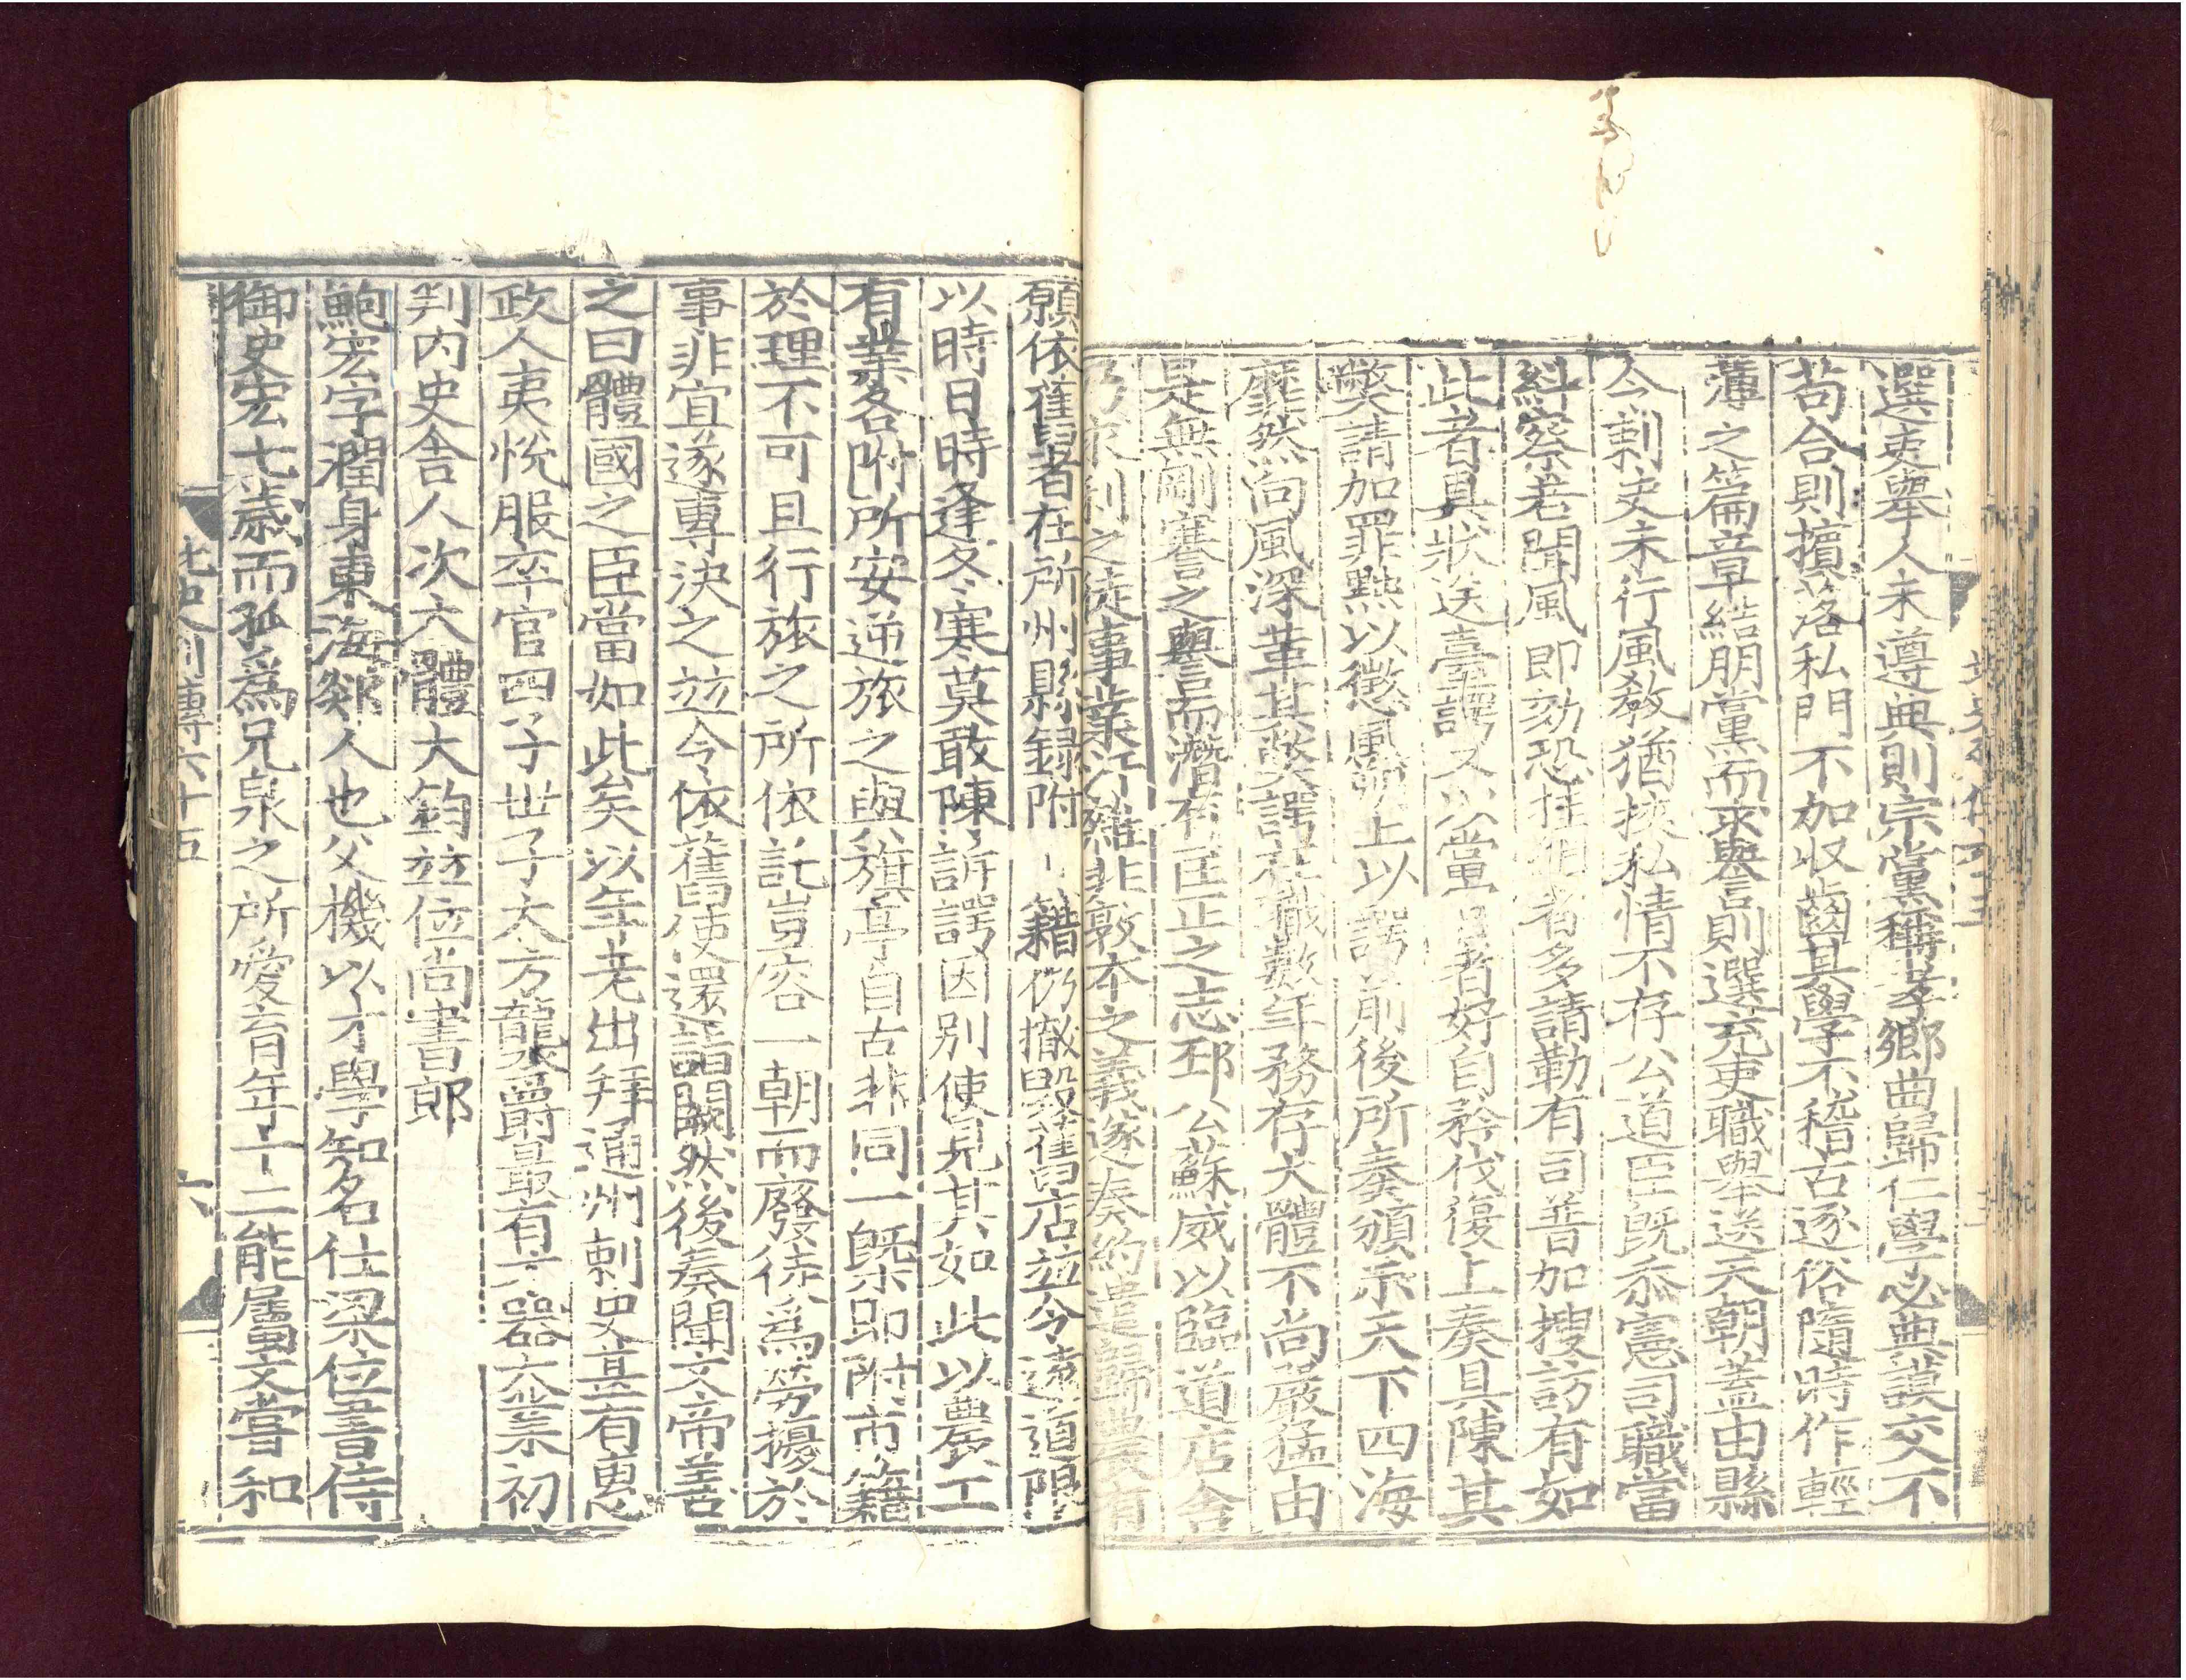 選吏舉人未遵典則宗黨稱孝鄉曲歸仁學必典謨交不
苟合則擯落私門不加收齒其學不稽古逐俗隨時作輕
薄之篇章結朋黨而求譽則選充吏職舉送天朝蓋由縣
令刺史未行風教猶挾私情不存公道臣既忝憲司職當
糾察若聞風即劾恐挂網者多請勒有司普加搜訪有如
此者具狀送臺諤又以當官者好自矜伐復上奏具陳其
弊請加罪黜以懲風軌上以諤前後所奏頒示天下四海
靡然向風深革其弊諤在職數年務存大體不尚嚴猛由
是無剛謇之譽而潛有匡正之志邳公蘇威以臨道店舍
乃求利之徒事業汙雜非敦本之義遂奏約遣歸農有
願依舊者在所州縣錄附 籍仍撤毀舊店並令遠道限
以時日時逢冬寒莫敢陳訴諤因別使見其如此以農工
有業各附所安逆旅之與旗亭自古非同一概即附市籍
於理不可且行旅之所依託豈容一朝而廢徒爲勞擾於
事非宜遂專決之竝令依舊使還詣闕然後奏聞文帝善
之曰體國之臣當如此矣以年老出拜通州刺史甚有惠
政人夷悅服卒官四子世子大方襲爵最有六器六業初
判内史舍人次六體大鈞竝位尚書郎
鮑宏字潤身東海郯人也父機以才學知名仕梁位書侍
御史宏七歳而孤爲兄泉之所愛育年十二能屬文嘗和
北史列傳六十五
六